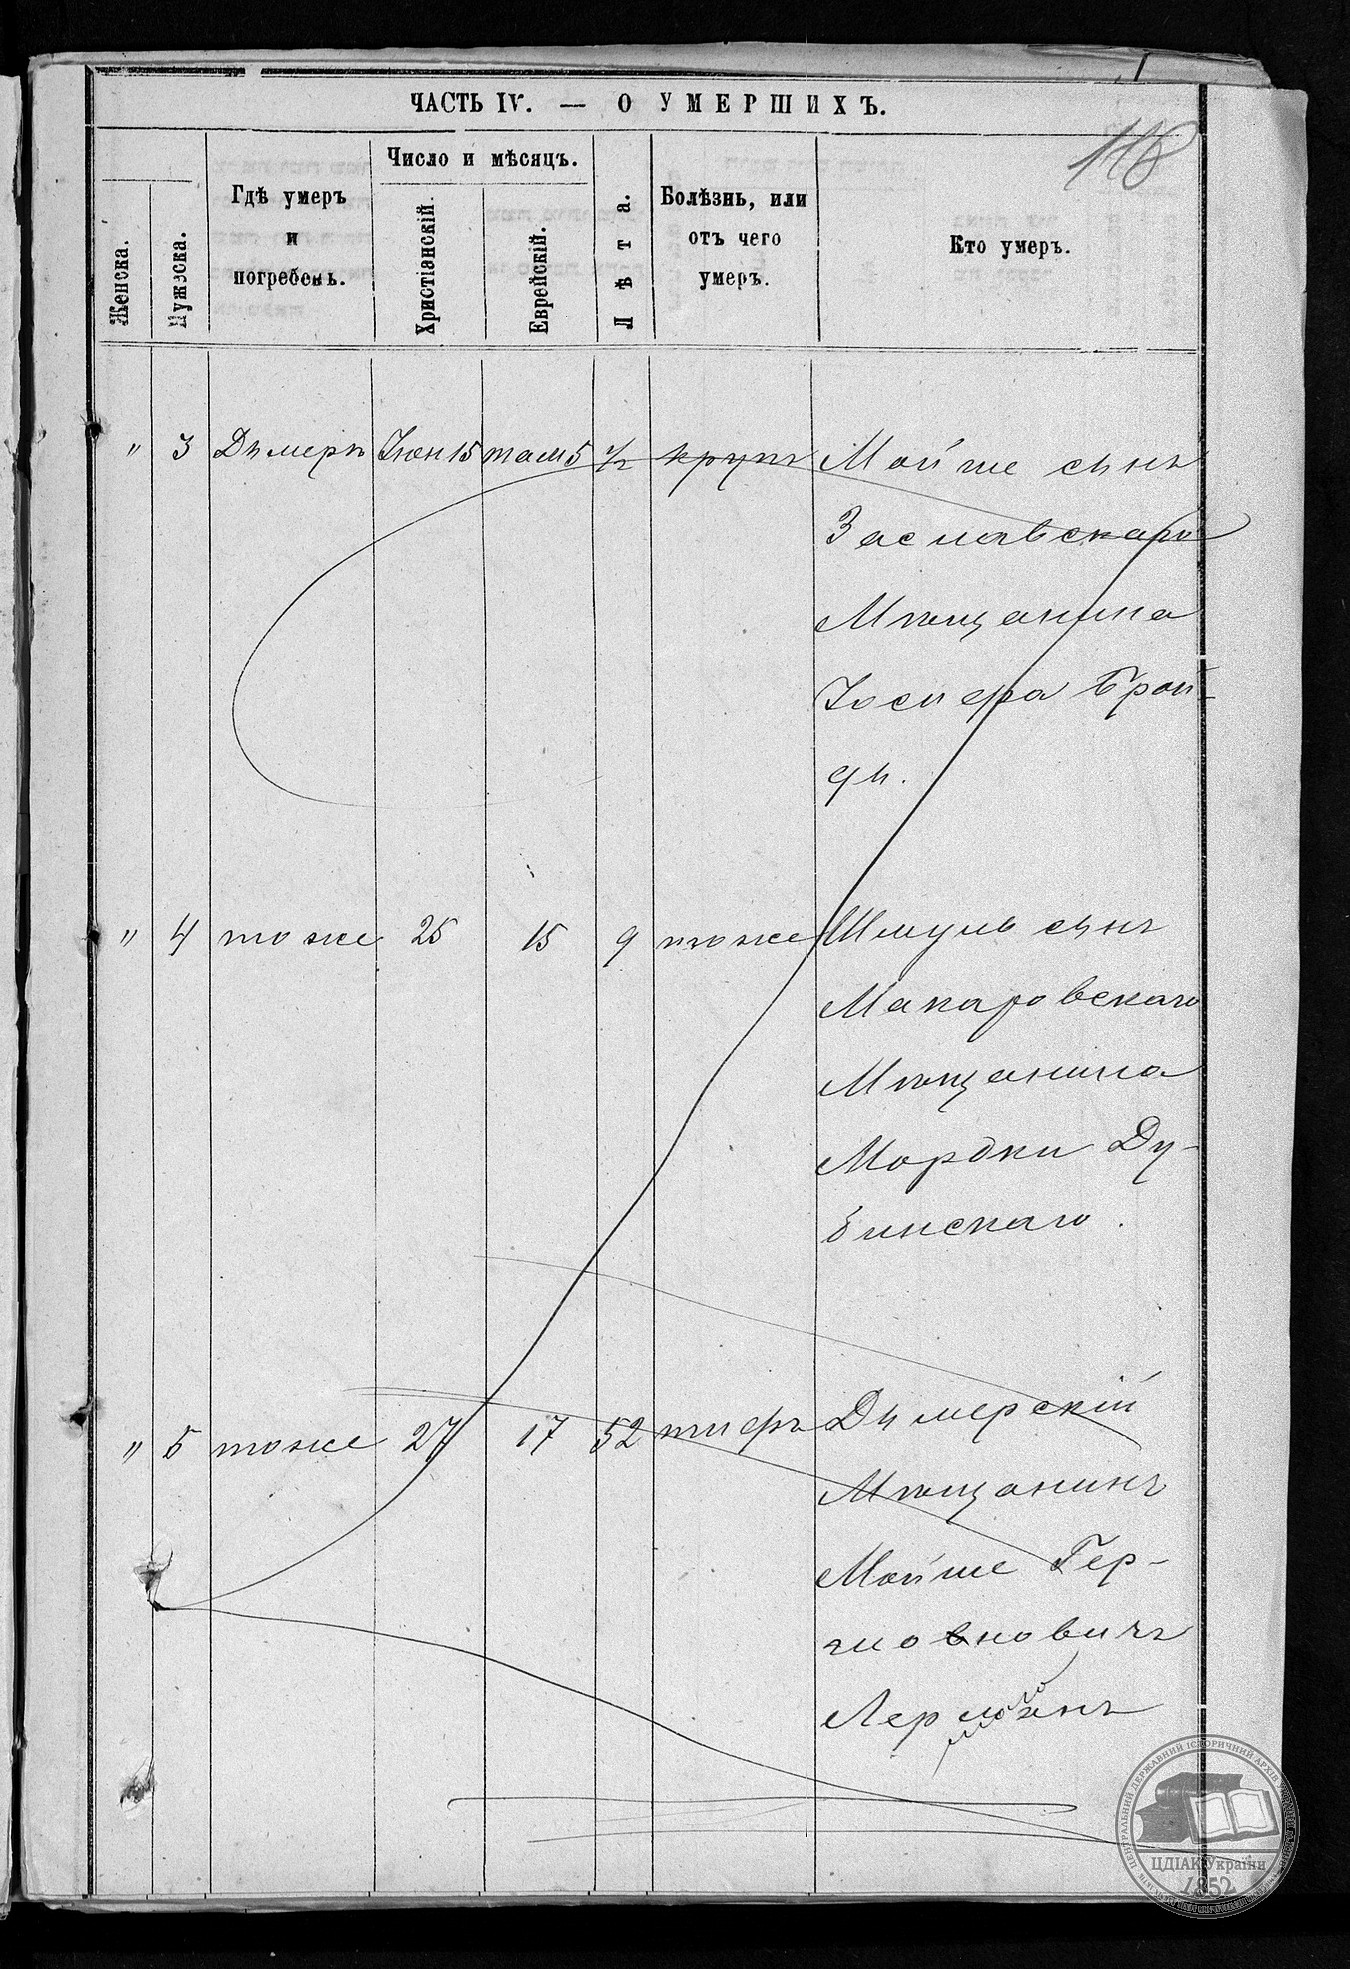 ЧАСТЬ IV. — О УМЕРШИХЪ.
118
Женска.
Мужеска.
Гдѣ умеръ
и
погребенъ.
Число и мѣсяцъ.
Христіанскій.
Еврейскій.
Лѣта.
Болѣзнь, или
отъ чего
умеръ.
Кто умеръ.
" 3 Дымеръ Іюн 15 там 5 1/2 крупъ Мойше сынъ
Заславскаго
Мѣщанина
Іосифа Брон-
ды.
" 4 тоже 25 15 9 тоже Шмуль сынъ
Макаровскаго
Мѣщанина
Мордки Ду-
бинскаго.
" 5 тоже 27 17 52 тифъ Дымерскій
Мѣщанинъ
Мойше Гер-
шовновичъ
Лерманъ
ЦЕНТРАЛЬНИЙ ДЕРЖАВНИЙ ІСТОРИЧНИЙ АРХІВ
ЦДІАК України
1852